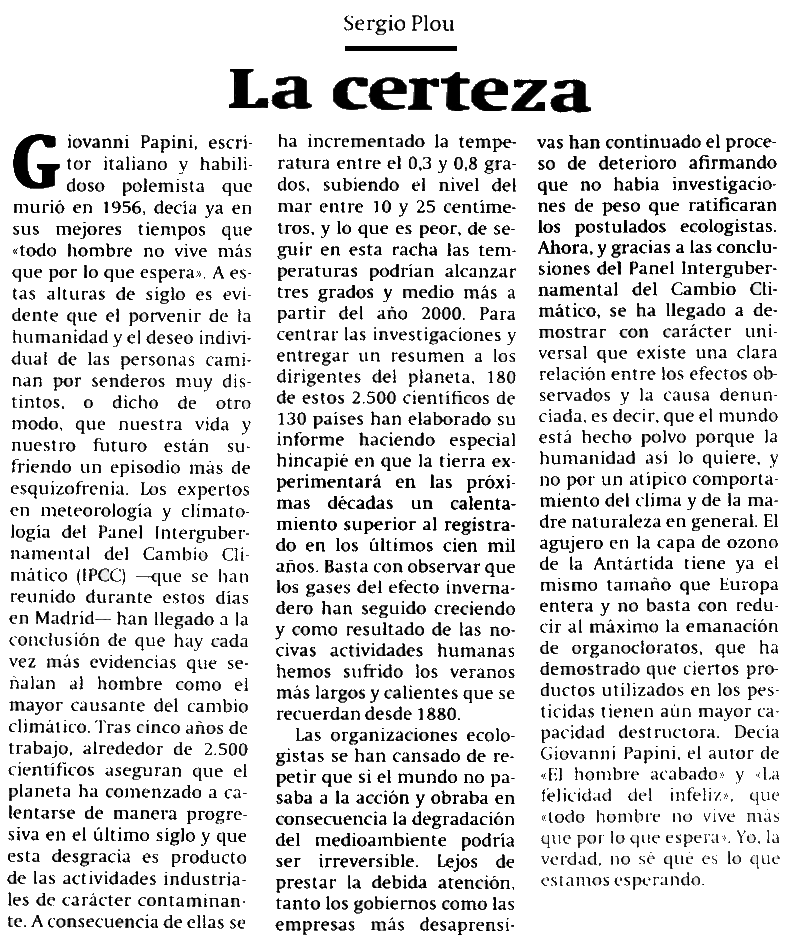 Sergio Plou
La certeza
Giovanni Papini, escri-
tor italiano y habili-
doso polemista que
murió en 1956, decía ya en
sus mejores tiempos que
«todo hombre no vive más
que por lo que espera». A es-
tas alturas de siglo es evi-
dente que el porvenir de la
humanidad y el deseo indivi-
dual de las personas cami-
nan por senderos muy dis-
tintos, o dicho de otro
modo, que nuestra vida y
nuestro futuro están su-
friendo un episodio más de
esquizofrenia. Los expertos
en meteorología y climato-
logía del Panel Interguber-
namental del Cambio Cli-
mático (IPCC) —que se han
reunido durante estos días
en Madrid— han llegado a la
conclusión de que hay cada
vez más evidencias que se-
ñalan al hombre como el
mayor causante del cambio
climático. Tras cinco años de
trabajo, alrededor de 2.500
científicos aseguran que el
planeta ha comenzado a ca-
lentarse de manera progre-
siva en el último siglo y que
esta desgracia es producto
de las actividades industria-
les de carácter contaminan-
te. A consecuencia de ellas se
ha incrementado la tempe-
ratura entre el 0,3 y 0,8 gra-
dos, subiendo el nivel del
mar entre 10 y 25 centíme-
tros, y lo que es peor, de se-
guir en esta racha las tem-
peraturas podrían alcanzar
tres grados y medio más a
partir del año 2000. Para
centrar las investigaciones y
entregar un resumen a los
dirigentes del planeta, 180
de estos 2.500 científicos de
130 países han elaborado su
informe haciendo especial
hincapié en que la tierra ex-
perimentará en las próxi-
mas décadas un calenta-
miento superior al registra-
do en los últimos cien mil
años. Basta con observar que
los gases del efecto inverna-
dero han seguido creciendo
y como resultado de las no-
civas actividades humanas
hemos sufrido los veranos
más largos y calientes que se
recuerdan desde 1880.
Las organizaciones ecolo-
gistas se han cansado de re-
petir que si el mundo no pa-
saba a la acción y obraba en
consecuencia la degradación
del medioambiente podría
ser irreversible. Lejos de
prestar la debida atención,
tanto los gobiernos como las
empresas más desaprensi-
vas han continuado el proce-
so de deterioro afirmando
que no había investigacio-
nes de peso que ratificaran
los postulados ecologistas.
Ahora, y gracias a las conclu-
siones del Panel Interguber-
namental del Cambio Cli-
mático, se ha llegado a de-
mostrar con carácter uni-
versal que existe una clara
relación entre los efectos ob-
servados y la causa denun-
ciada, es decir, que el mundo
está hecho polvo porque la
humanidad así lo quiere, y
no por un atípico comporta-
miento del clima y de la ma-
dre naturaleza en general. El
agujero en la capa de ozono
de la Antártida tiene ya el
mismo tamaño que Europa
entera y no basta con redu-
cir al máximo la emanación
de organocloratos, que ha
demostrado que ciertos pro-
ductos utilizados en los pes-
ticidas tienen aún mayor ca-
pacidad destructora. Decía
Giovanni Papini, el autor de
«El hombre acabado» y «La
felicidad del infeliz», que
«todo hombre no vive más
que por lo que espera». Yo, la
verdad, no sé qué es lo que
estamos esperando.